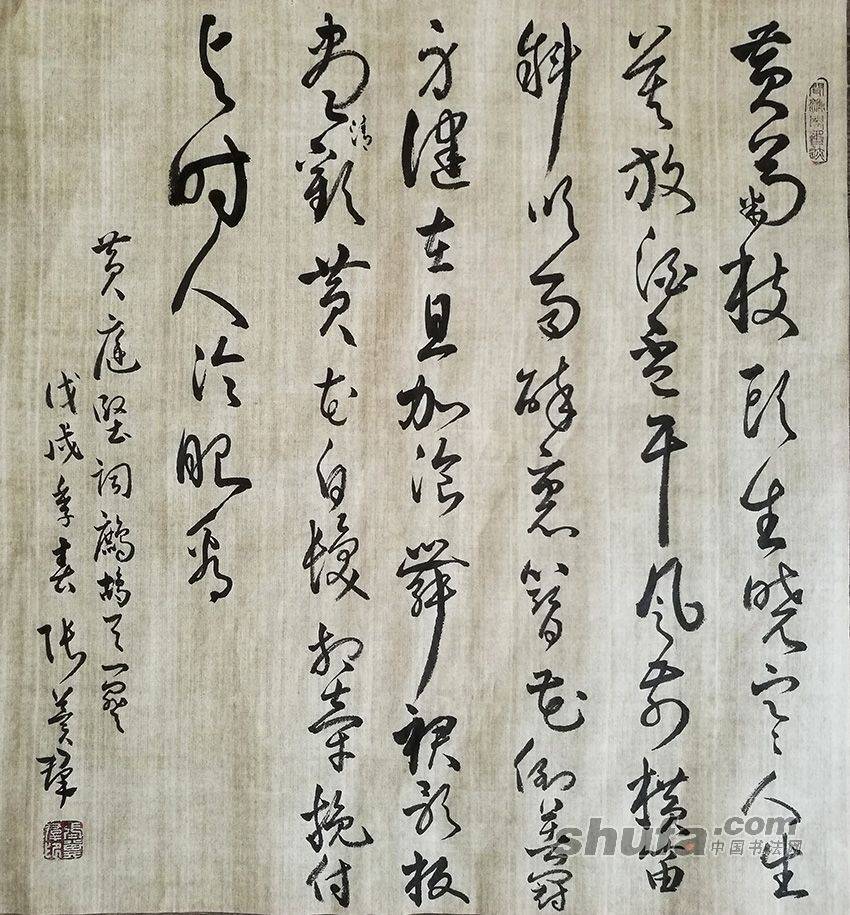 黄菊枝头生晓寒人生
莫放酒杯干风前横笛
斜吹雨醉里簪花倒著冠
身健在且加餐舞裙歌板
尽清欢黄花白发相牵挽付
与时人冷眼看
黄庭坚词鹧鸪天一阕
戊戌季春张
shufa.com
中国书法网